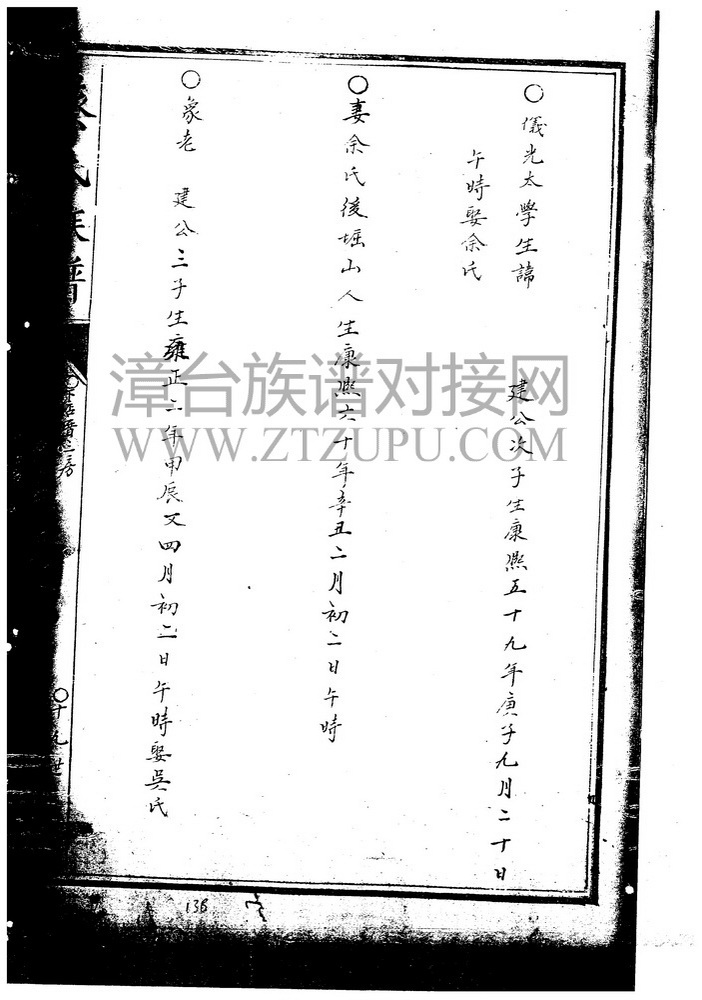 〇儀光太學生諱 建公次子生康熙五十九年庚子九月二十日
午時娶余氏
〇妻余氏後堀山人生康熙六十年辛丑二月初二日午時
〇象老 建公三子生雍正二年甲辰又四月初二日午時娶吳氏
氏族譜
房
〇十九世
136
漳台族谱对接网
WWW.ZTZUPU.COM